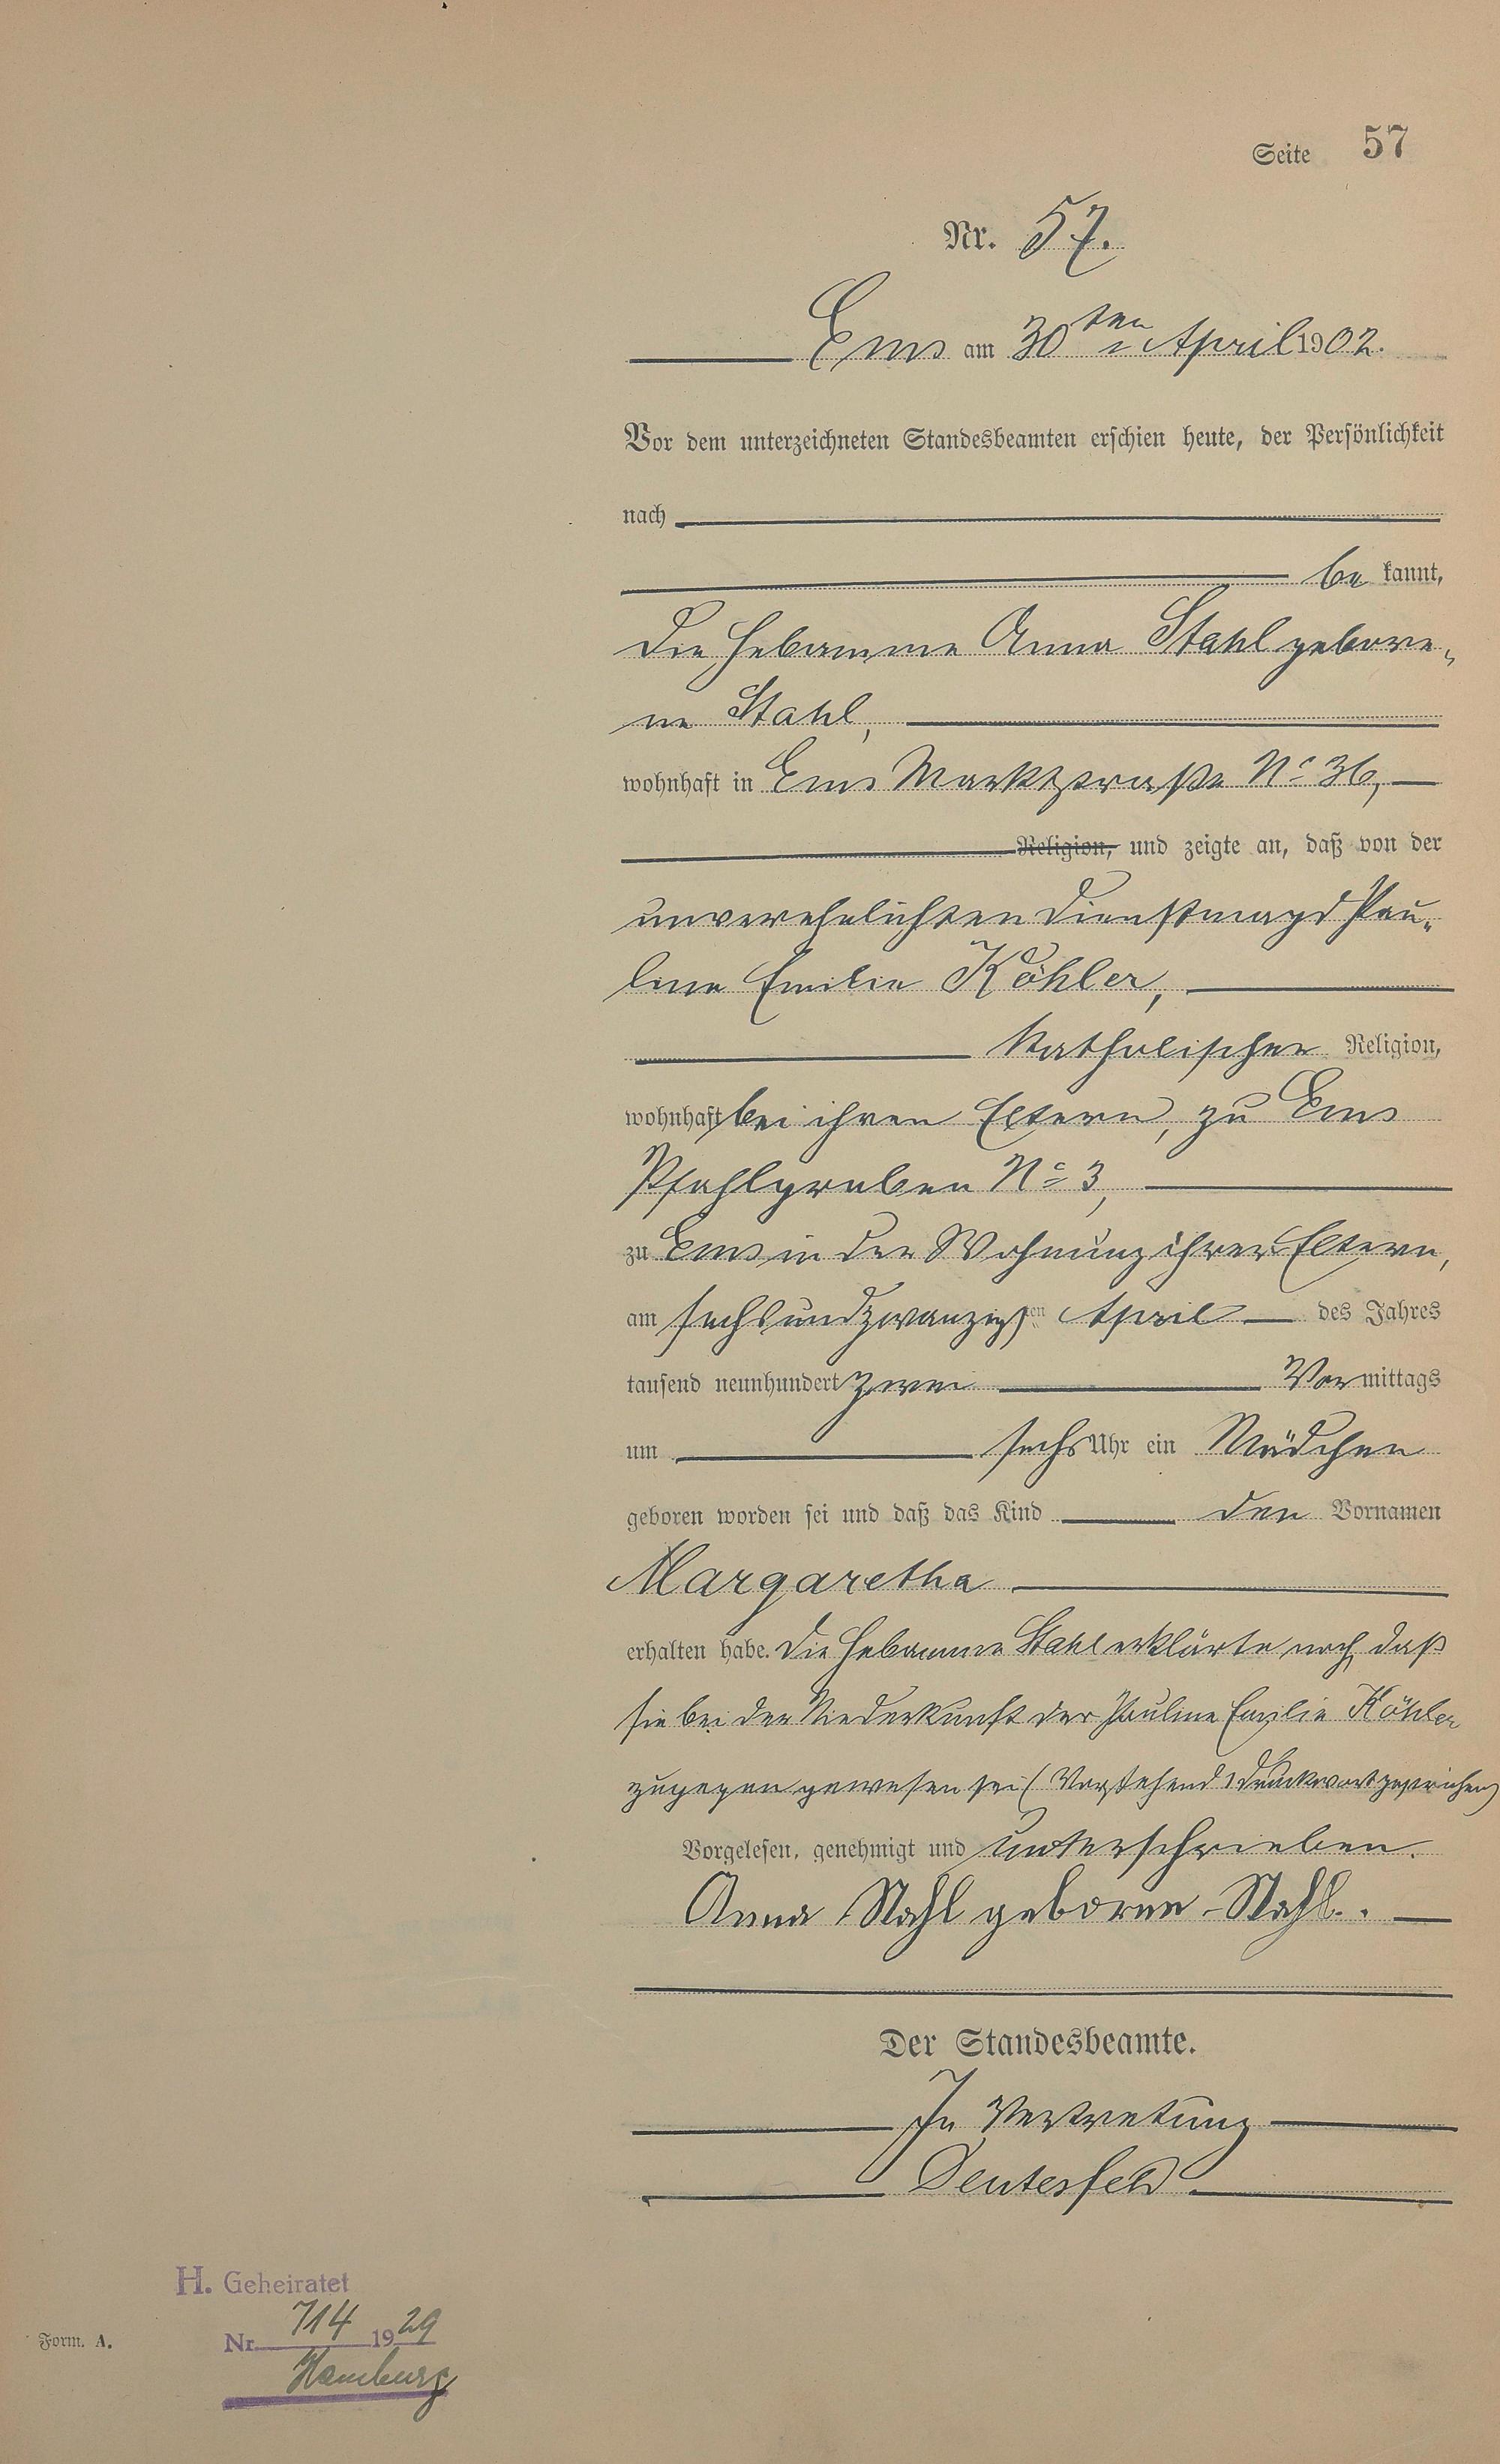 Seite 57
Nr. 57.
Ems am 30ten April 1902.
Vor dem unterzeichneten Standesbeamten erschien heute, der Persönlichkeit
nach
be kannt,
die Hebamme Anna Stahl gebore-
ne Stahl,
wohnhaft in Ems Marktstraße No 36,
Religion, und zeigte an, daß von der
unverehelichten Dienstmagd Pau-
line Emilie Köhler,
katholischer Religion,
wohnhaft bei ihren Eltern, zu Ems
Pfahlgraben No 3,
zu Ems in der Wohnung ihrer Eltern,
am sechsundzwanzigsten April des Jahres
tausend neunhundert zwei Vormittags
um sechs Uhr ein Mädchen
geboren worden sei und daß das Kind den Vornamen
Margaretha
erhalten habe. Die Hebamme Stahl erklärte noch, daß
sie bei der Niederkunft der Pauline Emilie Köhler
zugegen gewesen sei (Vorstehend 1 Druckwort gestrichen)
Vorgelesen, genehmigt und unterschrieben.
Anna Stahl geborne Stahl.
Der Standesbeamte.
In Vertretung
Deutesfeld
H. Geheiratet
Nr. 714 1929
Hamburg
Form. A.